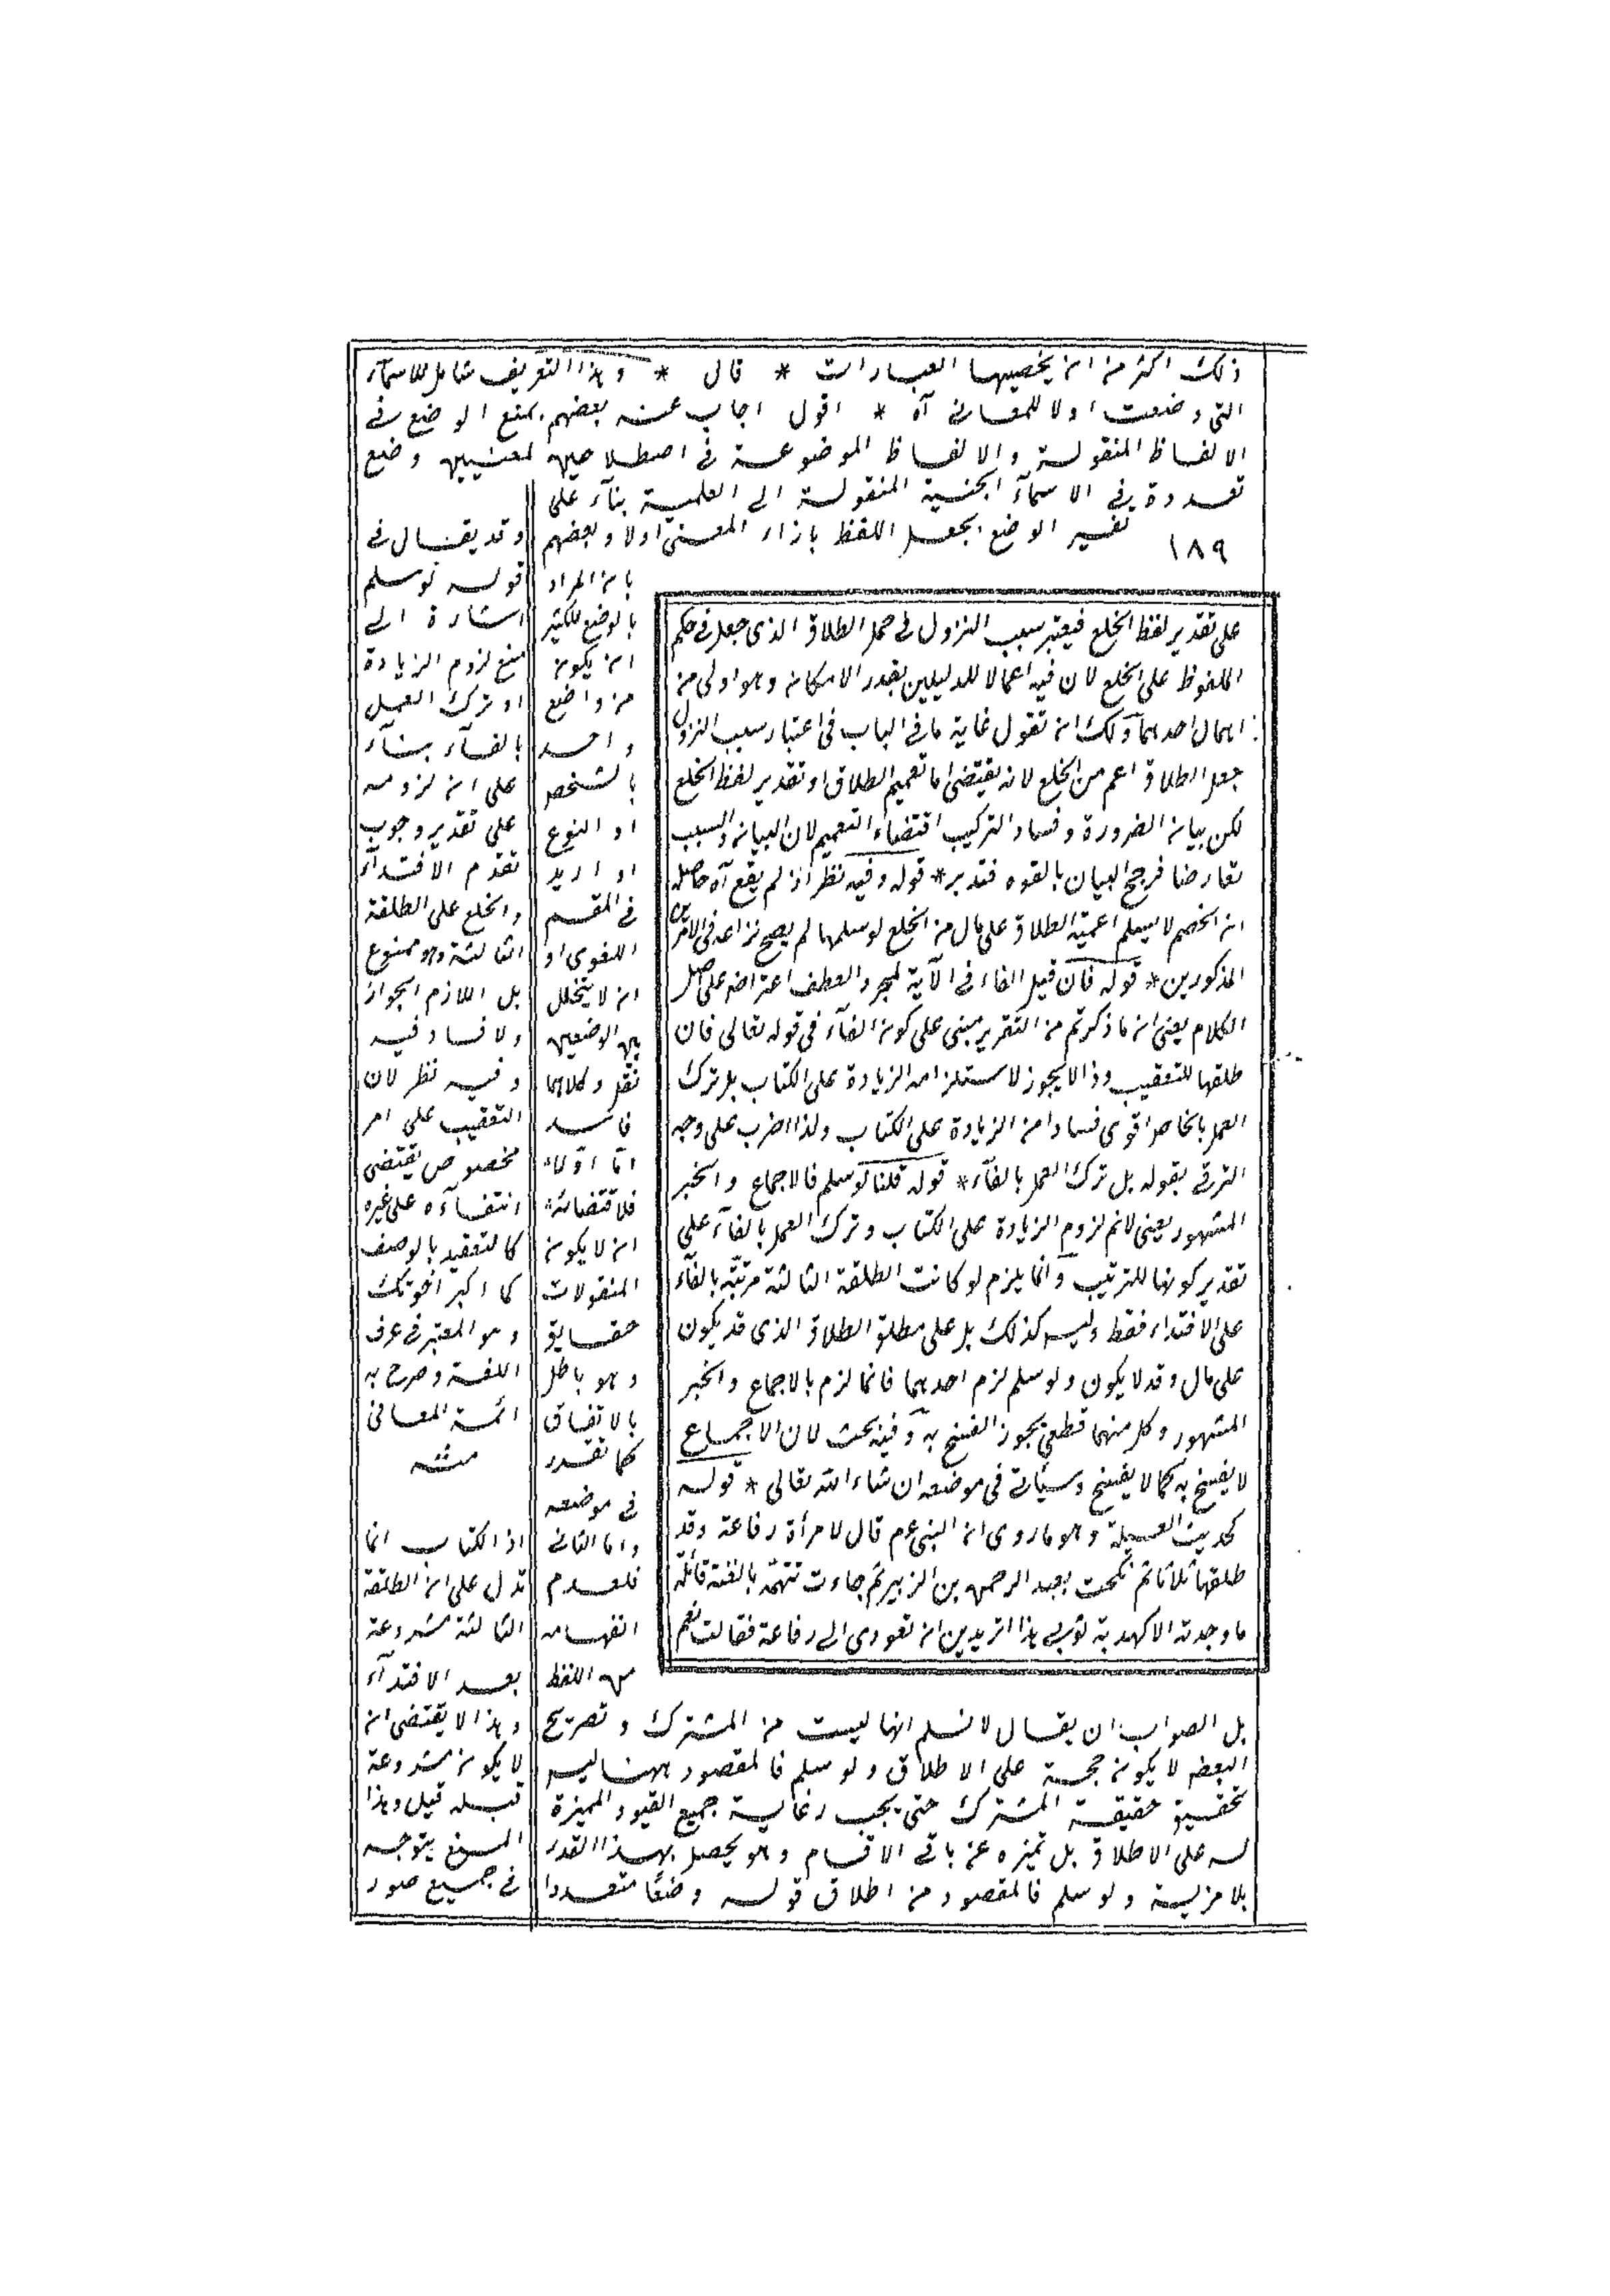 ذلك اكثر من ان يخصيها العبارات * قال * وهذا التعريف شامل للاسمآء
التى وضعت اولا للمعانى آه * اقول اجاب عنه بعضهم بمنع الوضع فى
الالفاظ المنقولة والالفاظ الموضوعة فى اصطلاحين لمعنيين وضع
تعددة فى الاسمآء الجنسية المنقولة الى العلمية بنآء على
تفسير الوضع بجعل اللفظ بازاء المعنى اولا وبعضهم
١٨٩
بان المراد
بالوضع للكثير
ان يكون
من واضع
واحد
بالشخص
او النوع
او اريد
فى المقسم
اللغوى او
ان لا يتخلل
بين الوضعين
نقل وكلاهما
فاسد
امّا اوّلا
فلاقتضائه
ان لا يكون
المنقولات
حقايق
وهو باطل
بالاتفاق
كما تقرر
فى موضعه
واما الثانى
فلعدم
انفهامه
من اللفظ
بل الصواب ان يقال لا نسلم انها ليست من المشترك وتصريح
البعض لا يكون حجة على الاطلاق ولو سلم فالمقصود ههنا ليس
تحقيق حقيقة المشترك حتى يجب رعاية جميع القيود المميزة
له على الاطلاق بل تميزه عن باقى الاقسام وهو يحصل بهذا القدر
بلا مزية ولو سلم فالمقصود من اطلاق قوله وضعًا متعددا
على تقدير لفظ الخلع فيعتبر سبب النزول فى حمل الطلاق الذى جعل فى حكم
الملفوظ على الخلع لان فيه اعمالا للدليلين بقدر الامكان وهو اولى من
اهمال احدهما ولك ان تقول غاية ما فى الباب فى اعتبار سبب النزول
جعل الطلاق اعم من الخلع لانه يقتضى اما تعميم الطلاق او تقدير لفظ الخلع
لكن بيان الضرورة وفساد التركيب اقتضاء التعميم لان البيان والسبب
تعارضا فرجح البيان بالقوه فتدبر * قوله وفيه نظر اذ لم يقع آه حاصله
ان الخصم لا يسلم اعمية الطلاق على مال من الخلع لو سلمها لم يصح نزاعه فى الامرين
المذكورين * قوله فان قيل الفاء فى الآية لمجرد العطف اعتراض على اصل
الكلام يعنى ان ما ذكرتم من التقرير مبنى على كون الفآء فى قوله تعالى فان
طلقها للتعقيب وذا لا يجوز لاستلزامه الزيادة على الكتاب بل ترك
العمل بالخاص اقوى فسادا من الزيادة على الكتاب ولذا اضرب على وجه
الترقى بقوله بل ترك العمل بالفآء * قوله قلنا لو سلم فالاجماع والخبر
المشهور يعنى لانم لزوم الزيادة على الكتاب وترك العمل بالفآء على
تقدير كونها للترتيب وانما يلزم لو كانت الطلقة الثالثة مرتبة بالفآء
على الافتداء فقط وليس كذلك بل على مطلق الطلاق الذى قد يكون
على مال وقد لا يكون ولو سلم لزم احدهما فانما لزم بالاجماع والخبر
المشهور وكل منهما قطعى يجوز الفسخ به وفيه بحث لان الاجماع
لا يفسخ به كما لا يفسخ وسيأتى فى موضعه ان شاء الله تعالى * قوله
كحديث العسيلة وهو ما روى ان النبى عم قال لامرأة رفاعة وقد
طلقها ثلاثا ثم نكحت بعبد الرحمن بن الزبير ثم جاءت تتهمه بالعنة قائلة
ما وجدته الا كهدبة ثوبى هذا اتريدين ان تعودى الى رفاعة فقالت نعم
وقد يقال فى
قوله لو سلم
اشارة الى
منع لزوم الزيادة
او ترك العمل
بالفآء بنآء
على ان لزومه
على تقدير وجوب
تقدم الافتدآء
والخلع على الطلقة
الثالثة وهو ممنوع
بل اللازم الجواز
ولا فساد فيه
وفيه نظر لان
التعقيب على امر
مخصوص يقتضى
انتفآءه على غيره
كالتقييد بالوصف
كما اكبر اخوتك
وهو المعتبر فى عرف
اللغة وصرح به
ائمة المعانى
منه
اذ الكتاب انما
تدل على ان الطلقة
الثالثة مشروعة
بعد الافتدآء
وهذا لا يقتضى ان
لا يكون مشروعة
قبله قيل وهذا
المنع يتوجه
فى جميع صور